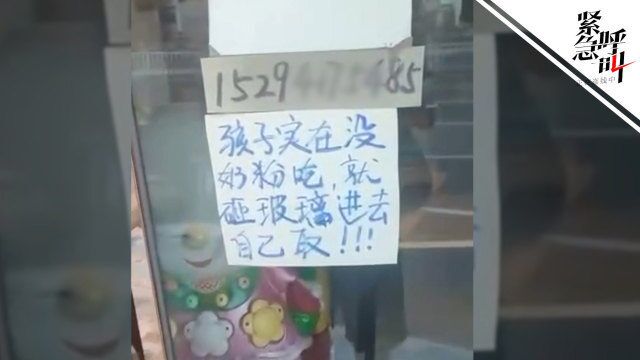 紧急呼叫
1529
85
孩子实在没
奶粉吃,就
砸玻璃进去
自己取!!!